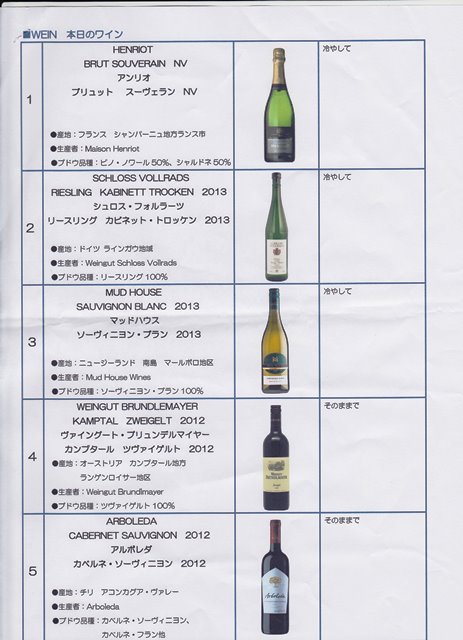 ■WEIN 本日のワイン
1
HENRIOT
BRUT SOUVERAIN NV
アンリオ
ブリュット スーヴェラン NV
●産地：フランス シャンパーニュ地方ランス市
●生産者：Maison Henriot
●ブドウ品種：ピノ・ノワール50%、シャルドネ50%
冷やして
2
SCHLOSS VOLLRADS
RIESLING KABINETT TROCKEN 2013
シュロス・フォルラーツ
リースリング カビネット・トロッケン 2013
●産地：ドイツ ラインガウ地域
●生産者：Weingut Schloss Vollrads
●ブドウ品種：リースリング 100%
冷やして
3
MUD HOUSE
SAUVIGNON BLANC 2013
マッドハウス
ソーヴィニヨン・ブラン 2013
●産地：ニュージーランド 南島 マールボロ地区
●生産者：Mud House Wines
●ブドウ品種：ソーヴィニヨン・ブラン 100%
冷やして
4
WEINGUT BRUNDLMAYER
KAMPTAL ZWEIGELT 2012
ヴァイングート・ブリュンデルマイヤー
カンプタール ツヴァイゲルト 2012
●産地：オーストリア カンプタール地方
ランゲンロイサー地区
●生産者：Weingut Brundlmayer
●ブドウ品種：ツヴァイゲルト 100%
そのままで
5
ARBOLEDA
CABERNET SAUVIGNON 2012
アルボレダ
カベルネ・ソーヴィニヨン 2012
●産地：チリ アコンカグア・ヴァレー
●生産者：Arboleda
●ブドウ品種：カベルネ・ソーヴィニヨン、
カベルネ・フラン他
そのままで
Arboleda